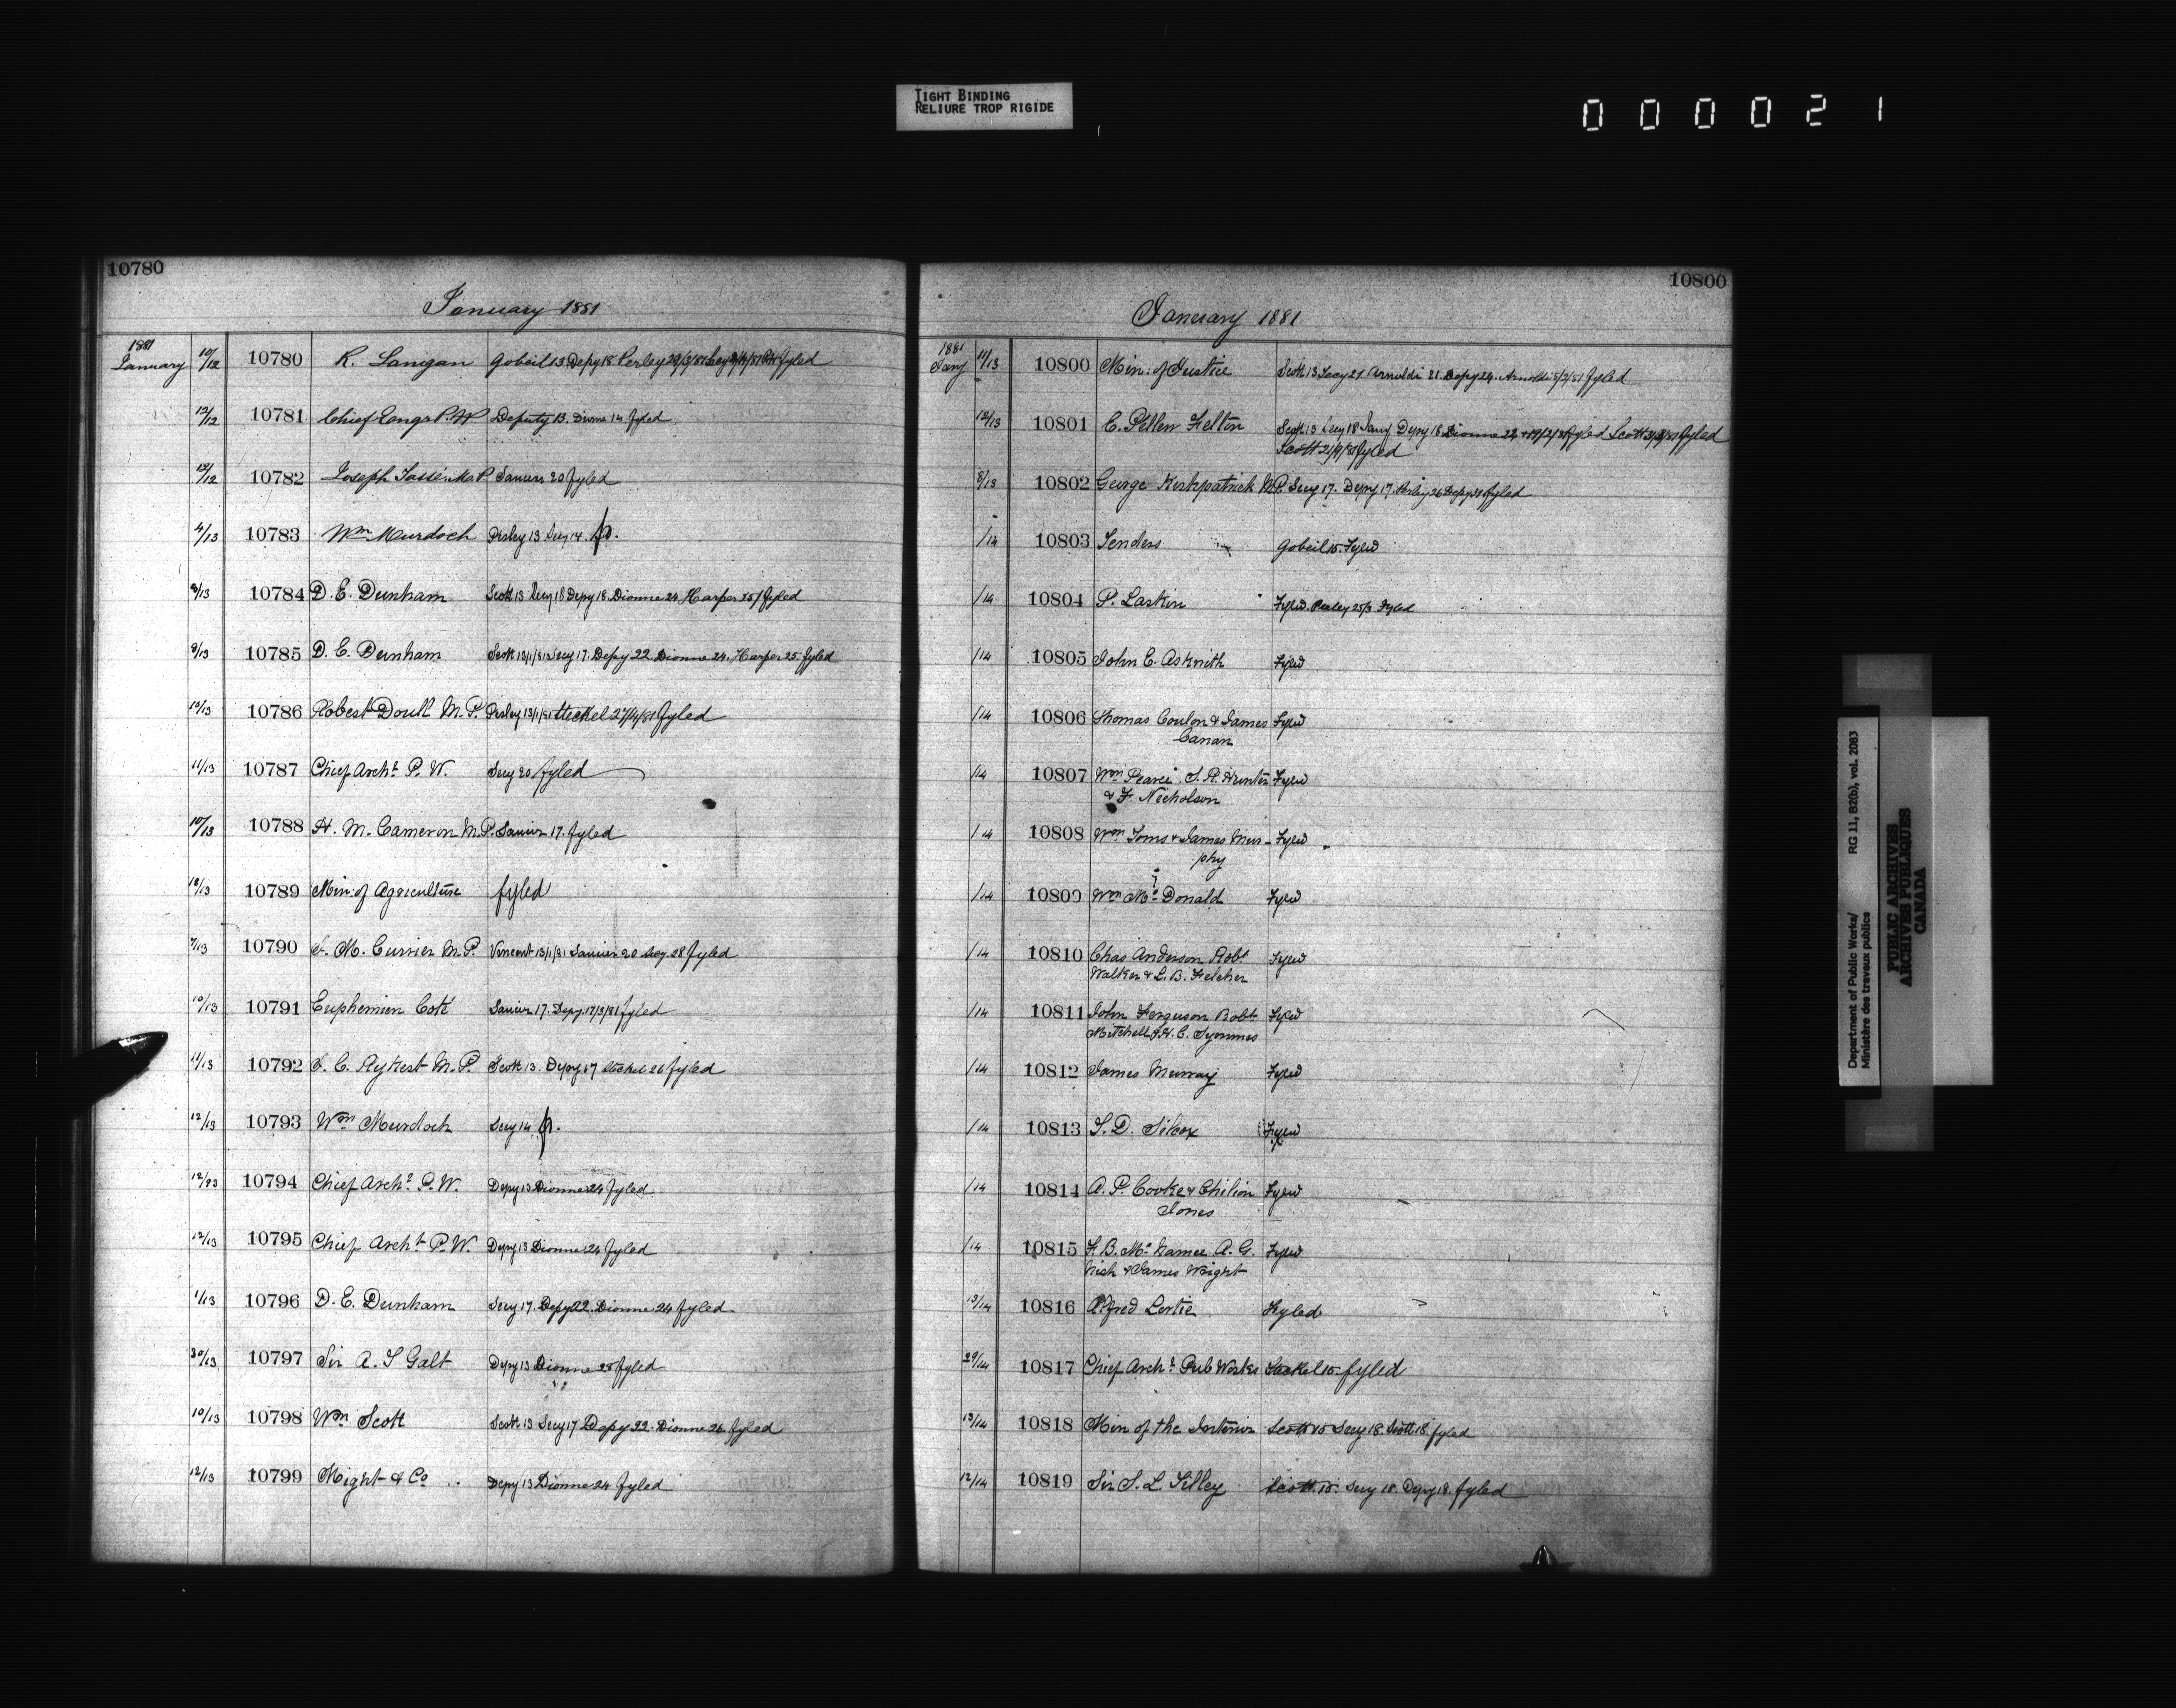 TIGHT BINDING
RELIURE TROP RIGIDE
000021
10780
January 1881
1881
January 10/12 10780 R. Lanigan Gobeil 13 Depy 18 Perley fyled
12/12 10781 Chief Engr P.W Deputy 13. Dionne 14 fyled
12/12 10782 Joseph Tassé M.P. 20 fyled
4/13 10783 Wm Murdoch Perley 13 Secy 14. p.
8/13 10784 D. E. Dunham Scott 13 Secy 18 Depy 18. Dionne 24 Harper 25/ fyled
9/13 10785 D. E. Dunham Scott 13/1/81 Secy 17. Depy 22 Dionne 24. Harper 25. fyled
10/13 10786 Robert Doull M.P. Perley 13/1/81 Steckel 27/4/81 fyled
11/13 10787 Chief Archt P. W. Secy 20 fyled
10/13 10788 H. M. Cameron M.P. 17. fyled
12/13 10789 Min: of Agriculture fyled
7/13 10790 M. Currier M.P. Vincent 13/1/81 20 Secy 28 fyled
10/13 10791 Euphemien Coté 17. Depy 17/3/81 fyled
11/13 10792 C. Rykert M.P. Scott 13. Depy 17 Steckel 26 fyled
12/13 10793 Wm Murdoch Secy 14 p.
12/13 10794 Chief Archt P. W. Depy 13 Dionne 24 fyled
12/13 10795 Chief Archt P.W. Depy 13 Dionne 24 fyled
1/13 10796 D. E. Dunham Secy 17. Depy 22. Dionne 24 fyled
30/13 10797 Sir A. T Galt Depy 13 Dionne 25 fyled
10/13 10798 Wm Scott Scott 13 Secy 17 Depy 22. Dionne 26 fyled
12/13 10799 Might & Co Depy 13 Dionne 24 fyled
10800
January 1881
1881
Jany 11/13 10800 Min: of Justice Scott 13 Secy 21 Arnoldi 21. Depy 24. Arnoldi 5/2/81 fyled
12/13 10801 C. Pellew Felton Scott 13 Secy 18 Jany Depy 18 Dionne fyled Scott fyled
Scott 21/9/81 fyled
8/13 10802 George Kirkpatrick M.P. Secy 17. Depy 17. Perley 26 Depy fyled
/14 10803 Tenders Gobeil 15. Fyled
/14 10804 P. Larkin Fyled. Perley 25/3 Fyled
/14 10805 John E. Askwith Fyled
/14 10806 Thomas Conlon & James Fyled
Canan
/14 10807 Wm Pearce, S. R. Hunter Fyled
& F. Nicholson
/14 10808 Wm Toms & James Mur- Fyled
phy
/14 10809 Wm McDonald Fyled
/14 10810 Chas Anderson Robt Fyled
Walker & L. B. Fletcher
/14 10811 John Ferguson Robt Fyled
Mitchell & H. C. Symmes
/14 10812 James Murray Fyled
/14 10813 S. D. Silcox Fyled
/14 10814 A. P. Cooke & Chilion Fyled
Jones
/14 10815 F. B. McNamee A. G. Fyled
Nish & James Wright
13/14 10816 Alfred Lortie Fyled
29/14 10817 Chief Archt Pub Works Steckel 15. fyled
13/14 10818 Min of the Interior Scott 15 Secy 18. Scott 18. fyled
12/14 10819 Sir S. L. Tilley Scott 15. Secy 18. Depy 18. fyled
Department of Public Works/ RG 11, B2(b), vol. 2083
Ministère des travaux publics
PUBLIC ARCHIVES
ARCHIVES PUBLIQUES
CANADA